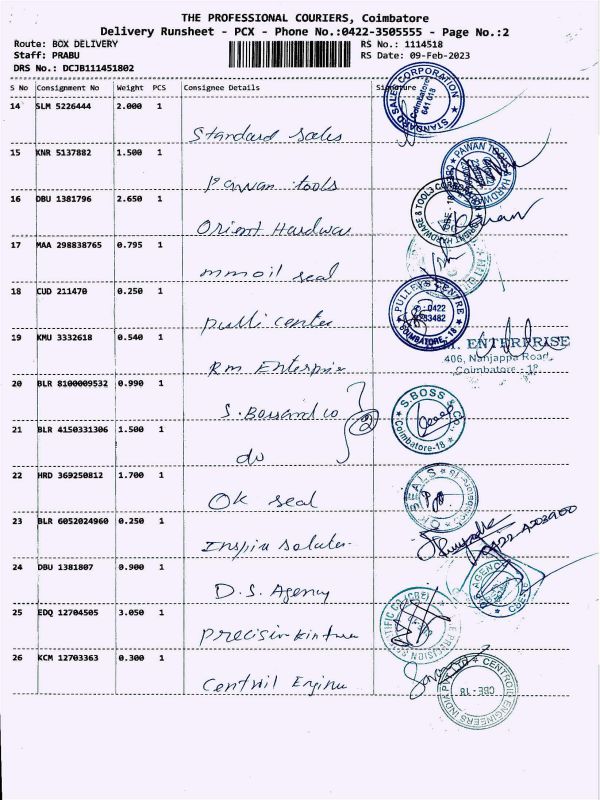 THE PROFESSIONAL COURIERS, Coimbatore
Delivery Runsheet - PCX - Phone No.:0422-3505555 - Page No.:2
Route: BOX DELIVERY RS No.: 1114518
Staff: PRABU RS Date: 09-Feb-2023
DRS No.: DCJB111451802
S No Consignment No Weight PCS Consignee Details Signature
14 SLM 5226444 2.000 1
Standard sales
STANDARD SALES CORPORATION Coimbatore 641 018
15 KNR 5137882 1.500 1
Pawan tools
PAWAN TOOLS
16 DBU 1381796 2.650 1
Orient Hardwar
ORIENT HARDWARE & TOOLS CBE - 18
17 MAA 298838765 0.795 1
mm oil seal
18 CUD 211470 0.250 1
pulli center
PULLEYS CENTRE COIMBATORE - 18
19 KMU 3332618 0.540 1
Rm Enterprix
ENTERPRISE
406, Nanjappa Road,
Coimbatore - 18
20 BLR 8100009532 0.990 1
S. Boss and co
2
S.BOSS & CO. Coimbatore-18
21 BLR 4150331306 1.500 1
do
22 HRD 369250812 1.700 1
OK seal
OK SEALS
23 BLR 6052024960 0.250 1
24 DBU 1381807 0.900 1
D.S. Agency
25 EDQ 12704505 3.050 1
26 KCM 12703363 0.300 1
CENTROIL ENGINEERS INDIA CBE - 18